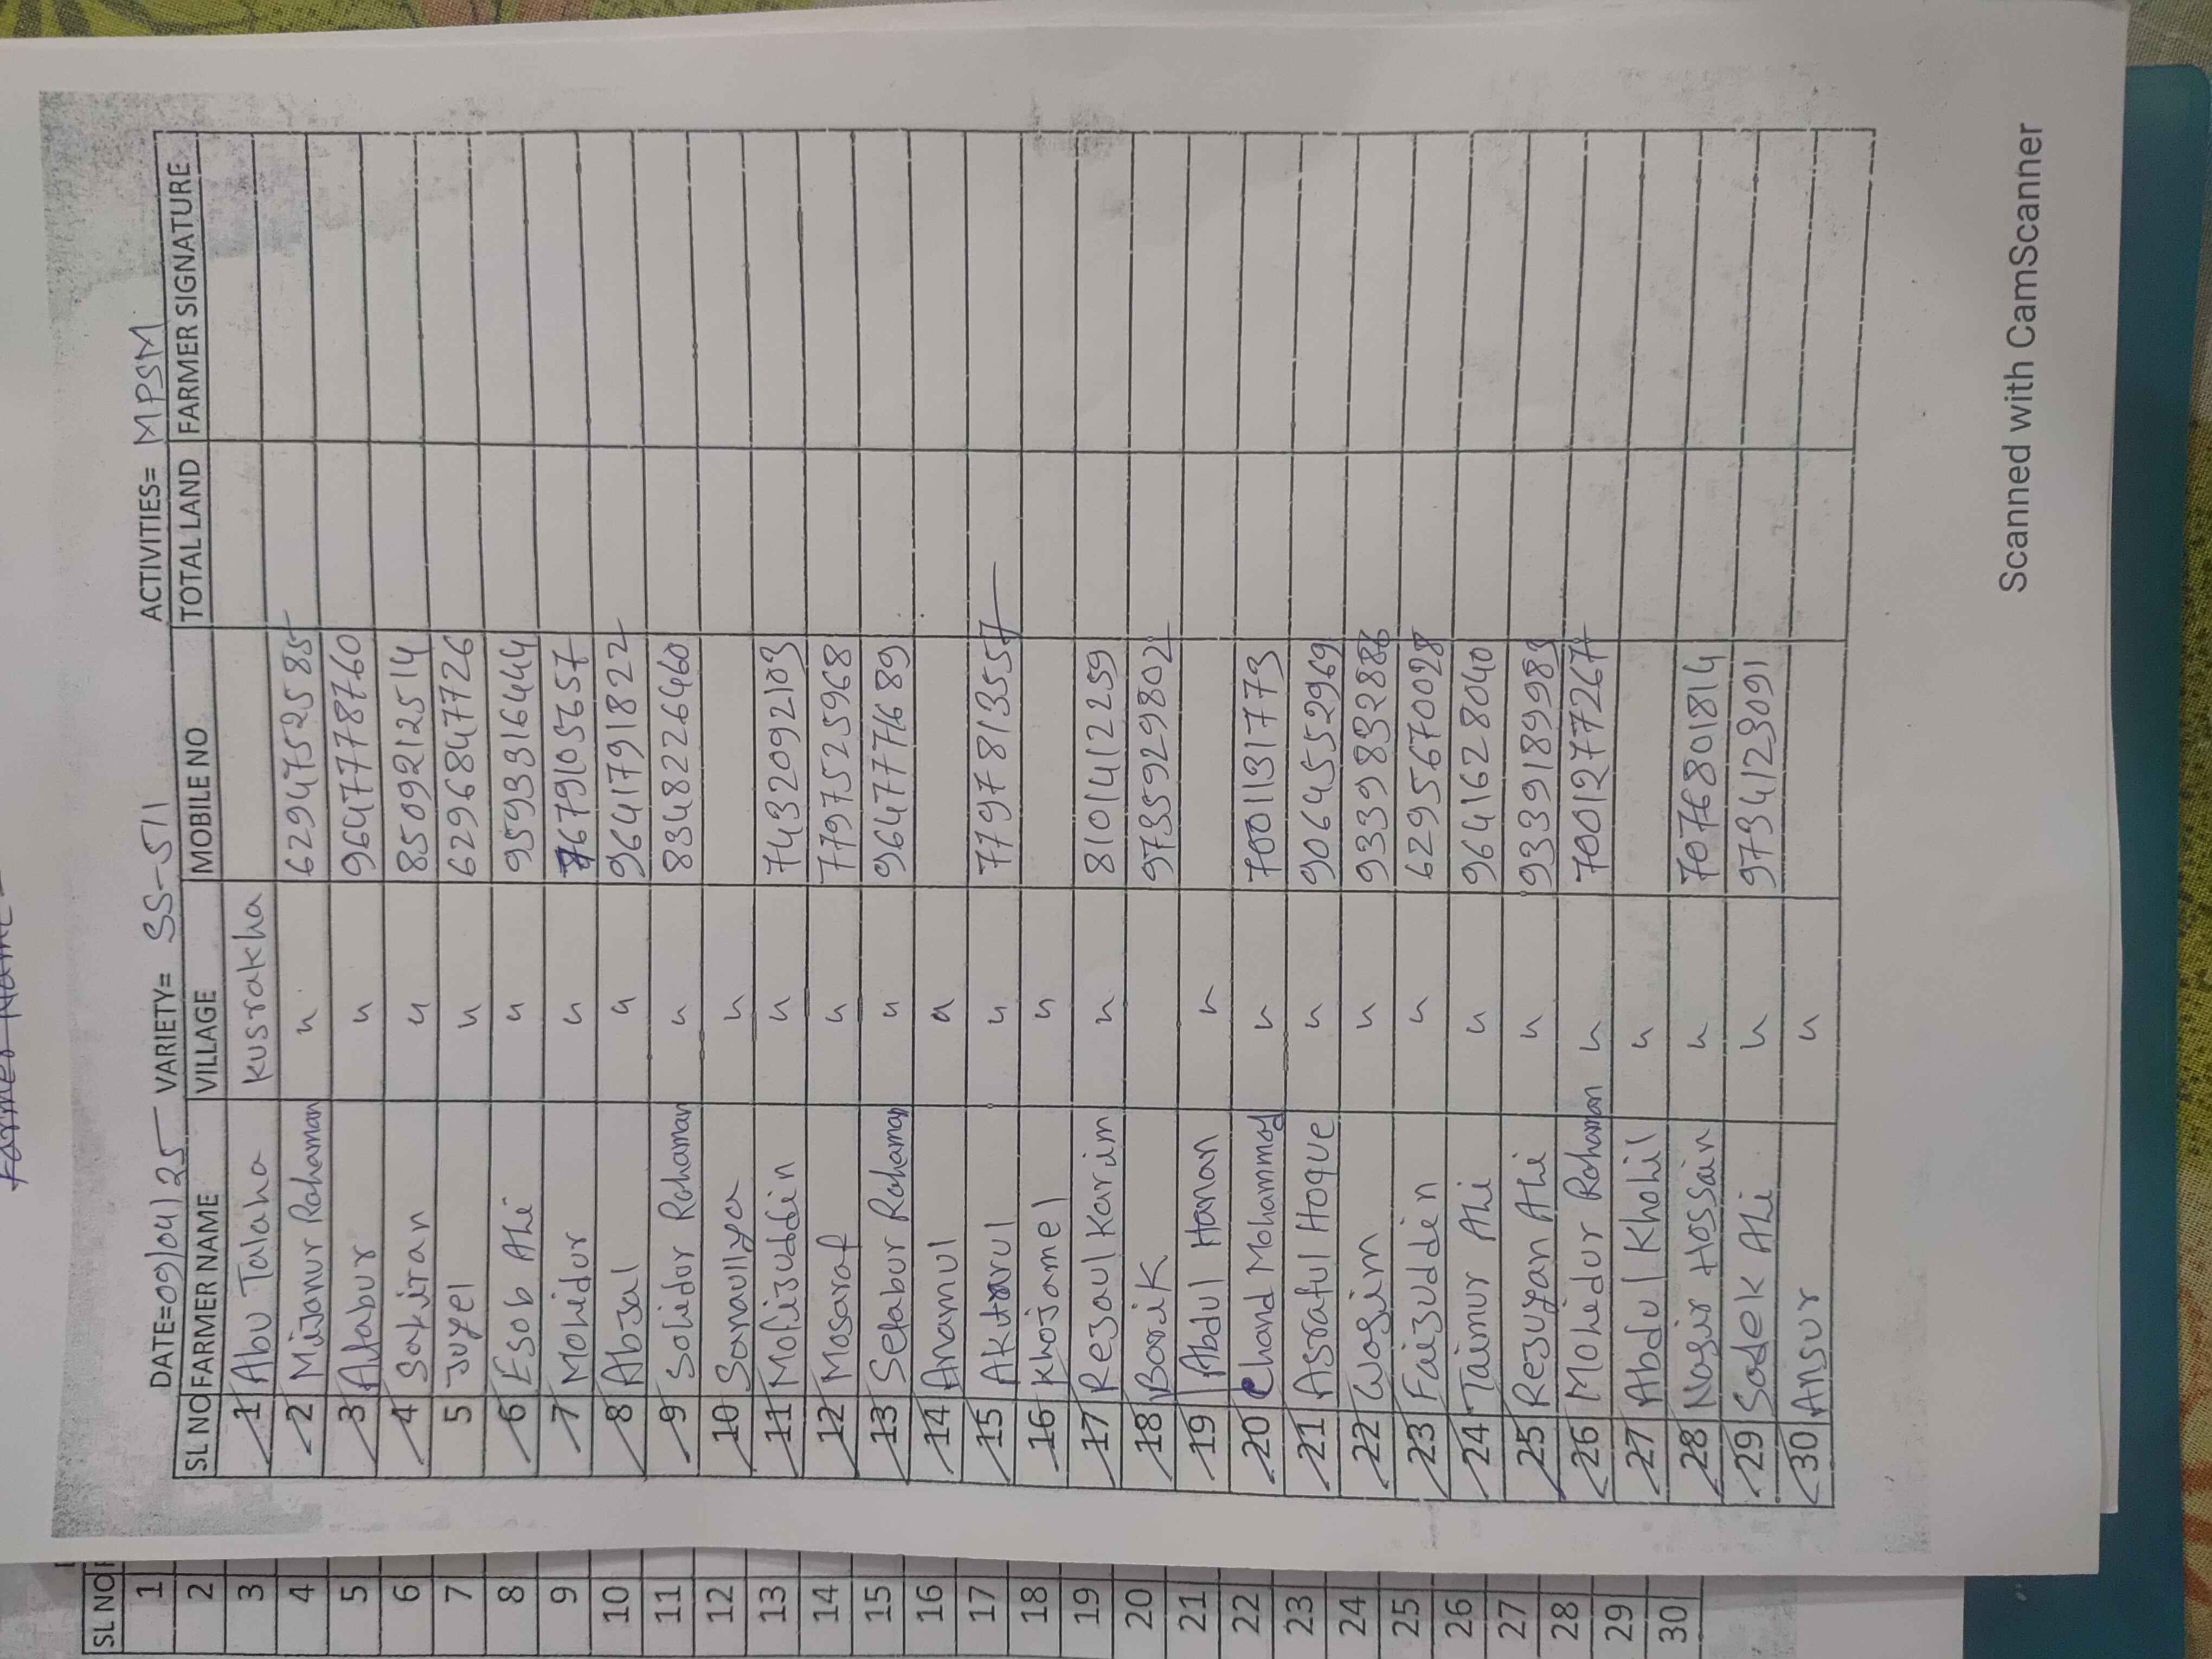 DATE=09/04/25 VARIETY= SS-511 ACTIVITIES= MPSM
SL NO FARMER NAME VILLAGE MOBILE NO TOTAL LAND FARMER SIGNATURE
1 Abu Talaha Kusrakha
2 Mijanur Rahaman " 6294752585
3 Atabur " 9647778760
4 Sakiran " 8509212514
5 Juyel " 6296847726
6 Esob Ali " 9593316444
7 Mohidur " 7679105657
8 Abjal " 9641791822
9 Sohidur Rahaman " 8348226460
10 Sanaullya "
11 Mofijuddin " 7432092103
12 Mosaraf " 7797525968
13 Selabur Rahaman " 9647771689
14 Anamul "
15 Aktarul " 7797813557
16 Khojamel "
17 Rejaul Karim " 8101412259
18 Barik 9735929802
19 Abdul Hanan "
20 Chand Mohammad " 7001131773
21 Asraful Hoque " 9064552969
22 Wasim " 9339832886
23 Faizuddin " 6295670028
24 Taimur Ali " 9641628040
25 Rejuyan Ali " 9339189983
26 Mohidur Rahaman " 7001277267
27 Abdul Khalil "
28 Nasir Hossain " 7076801814
29 Sadek Ali " 9734123091
30 Ansur "
Scanned with CamScanner
SL NO
1
2
3
4
5
6
7
8
9
10
11
12
13
14
15
16
17
18
19
20
21
22
23
24
25
26
27
28
29
30